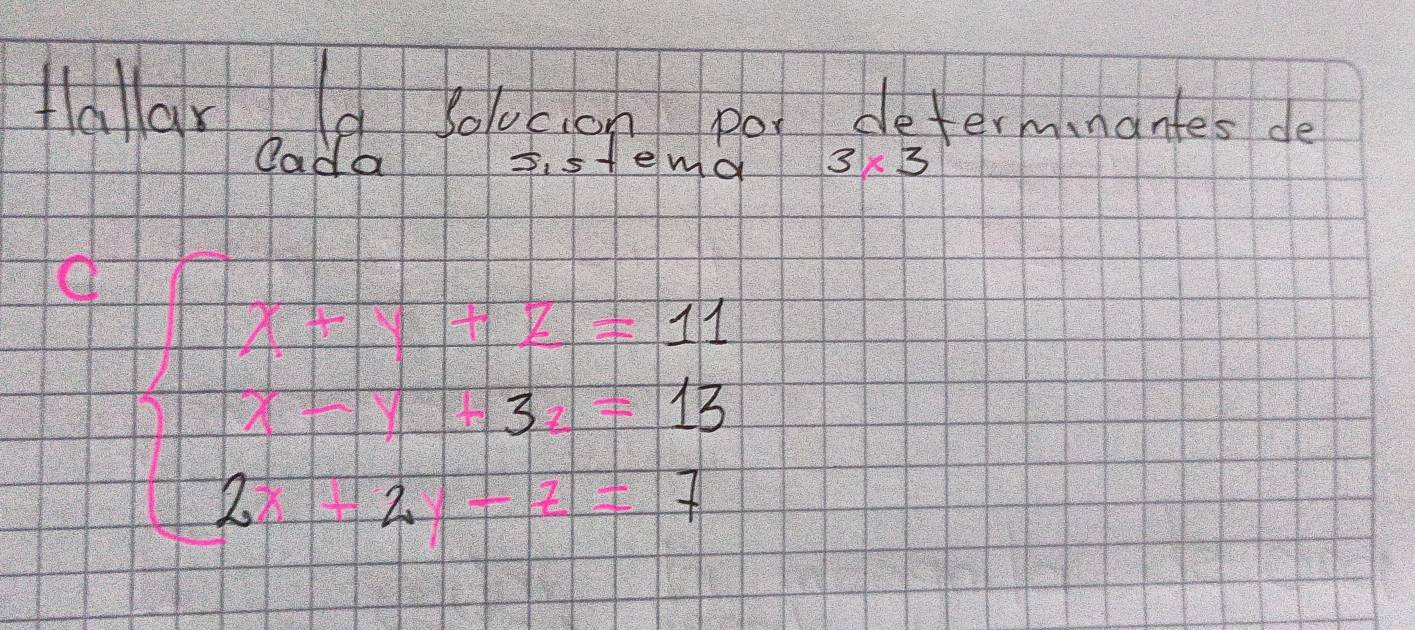 Hallar la solucion por determinantes de
cada sistema 3x3
C
x + y + z = 11
x - y + 3z = 13
2x + 2y - z = 7